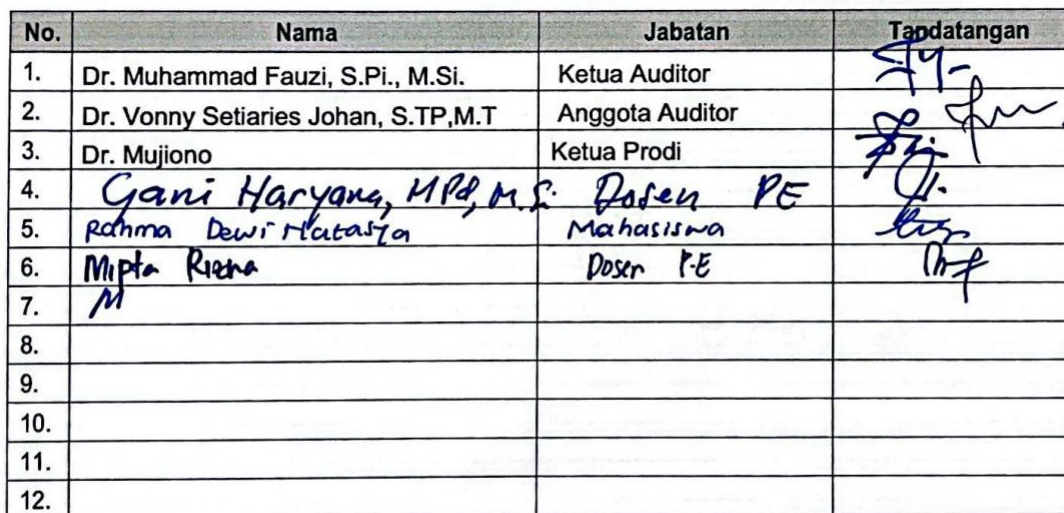 No. Nama Jabatan Tandatangan
1. Dr. Muhammad Fauzi, S.Pi., M.Si. Ketua Auditor
2. Dr. Vonny Setiaries Johan, S.TP,M.T Anggota Auditor
3. Dr. Mujiono Ketua Prodi
4. Gani Haryana, MPd, M.Si Dosen PE
5. Rahma Dewi Natasya Mahasiswa
6. Mipta Dosen P.E
7. M
8.
9.
10.
11.
12.